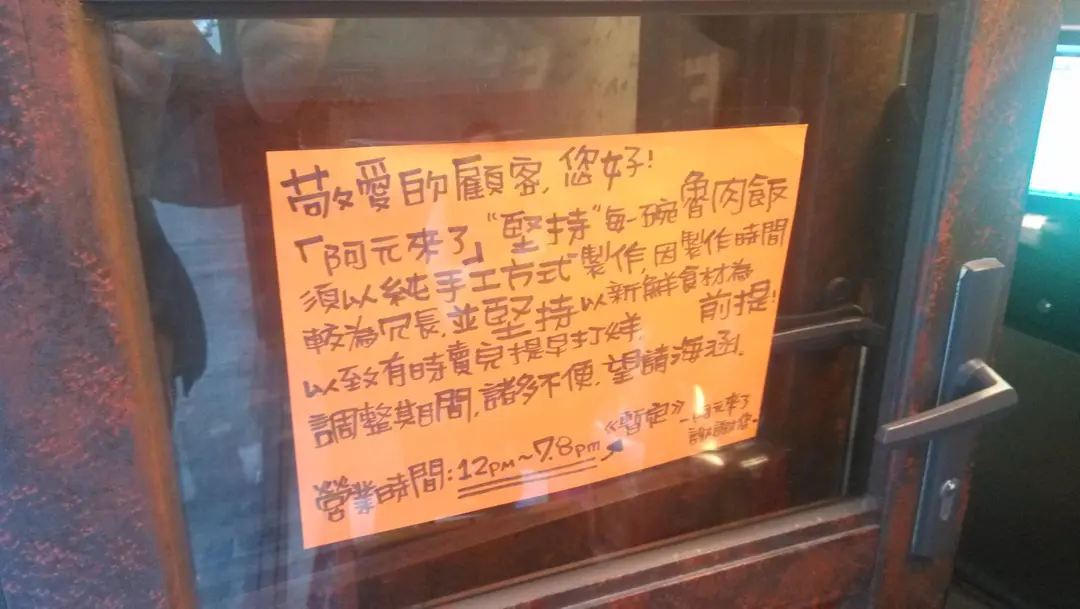 敬愛的顧客，您好！
「阿元來了」"堅持"每一碗魯肉飯
須以純手工方式製作，因製作時間
較為冗長，並堅持以新鮮食材為前提！
以致有時賣完提早打烊，
調整期間，諸多不便，望請海涵。
營業時間：12PM~7.8PM 《暫定》
-阿元來了
謝謝您-